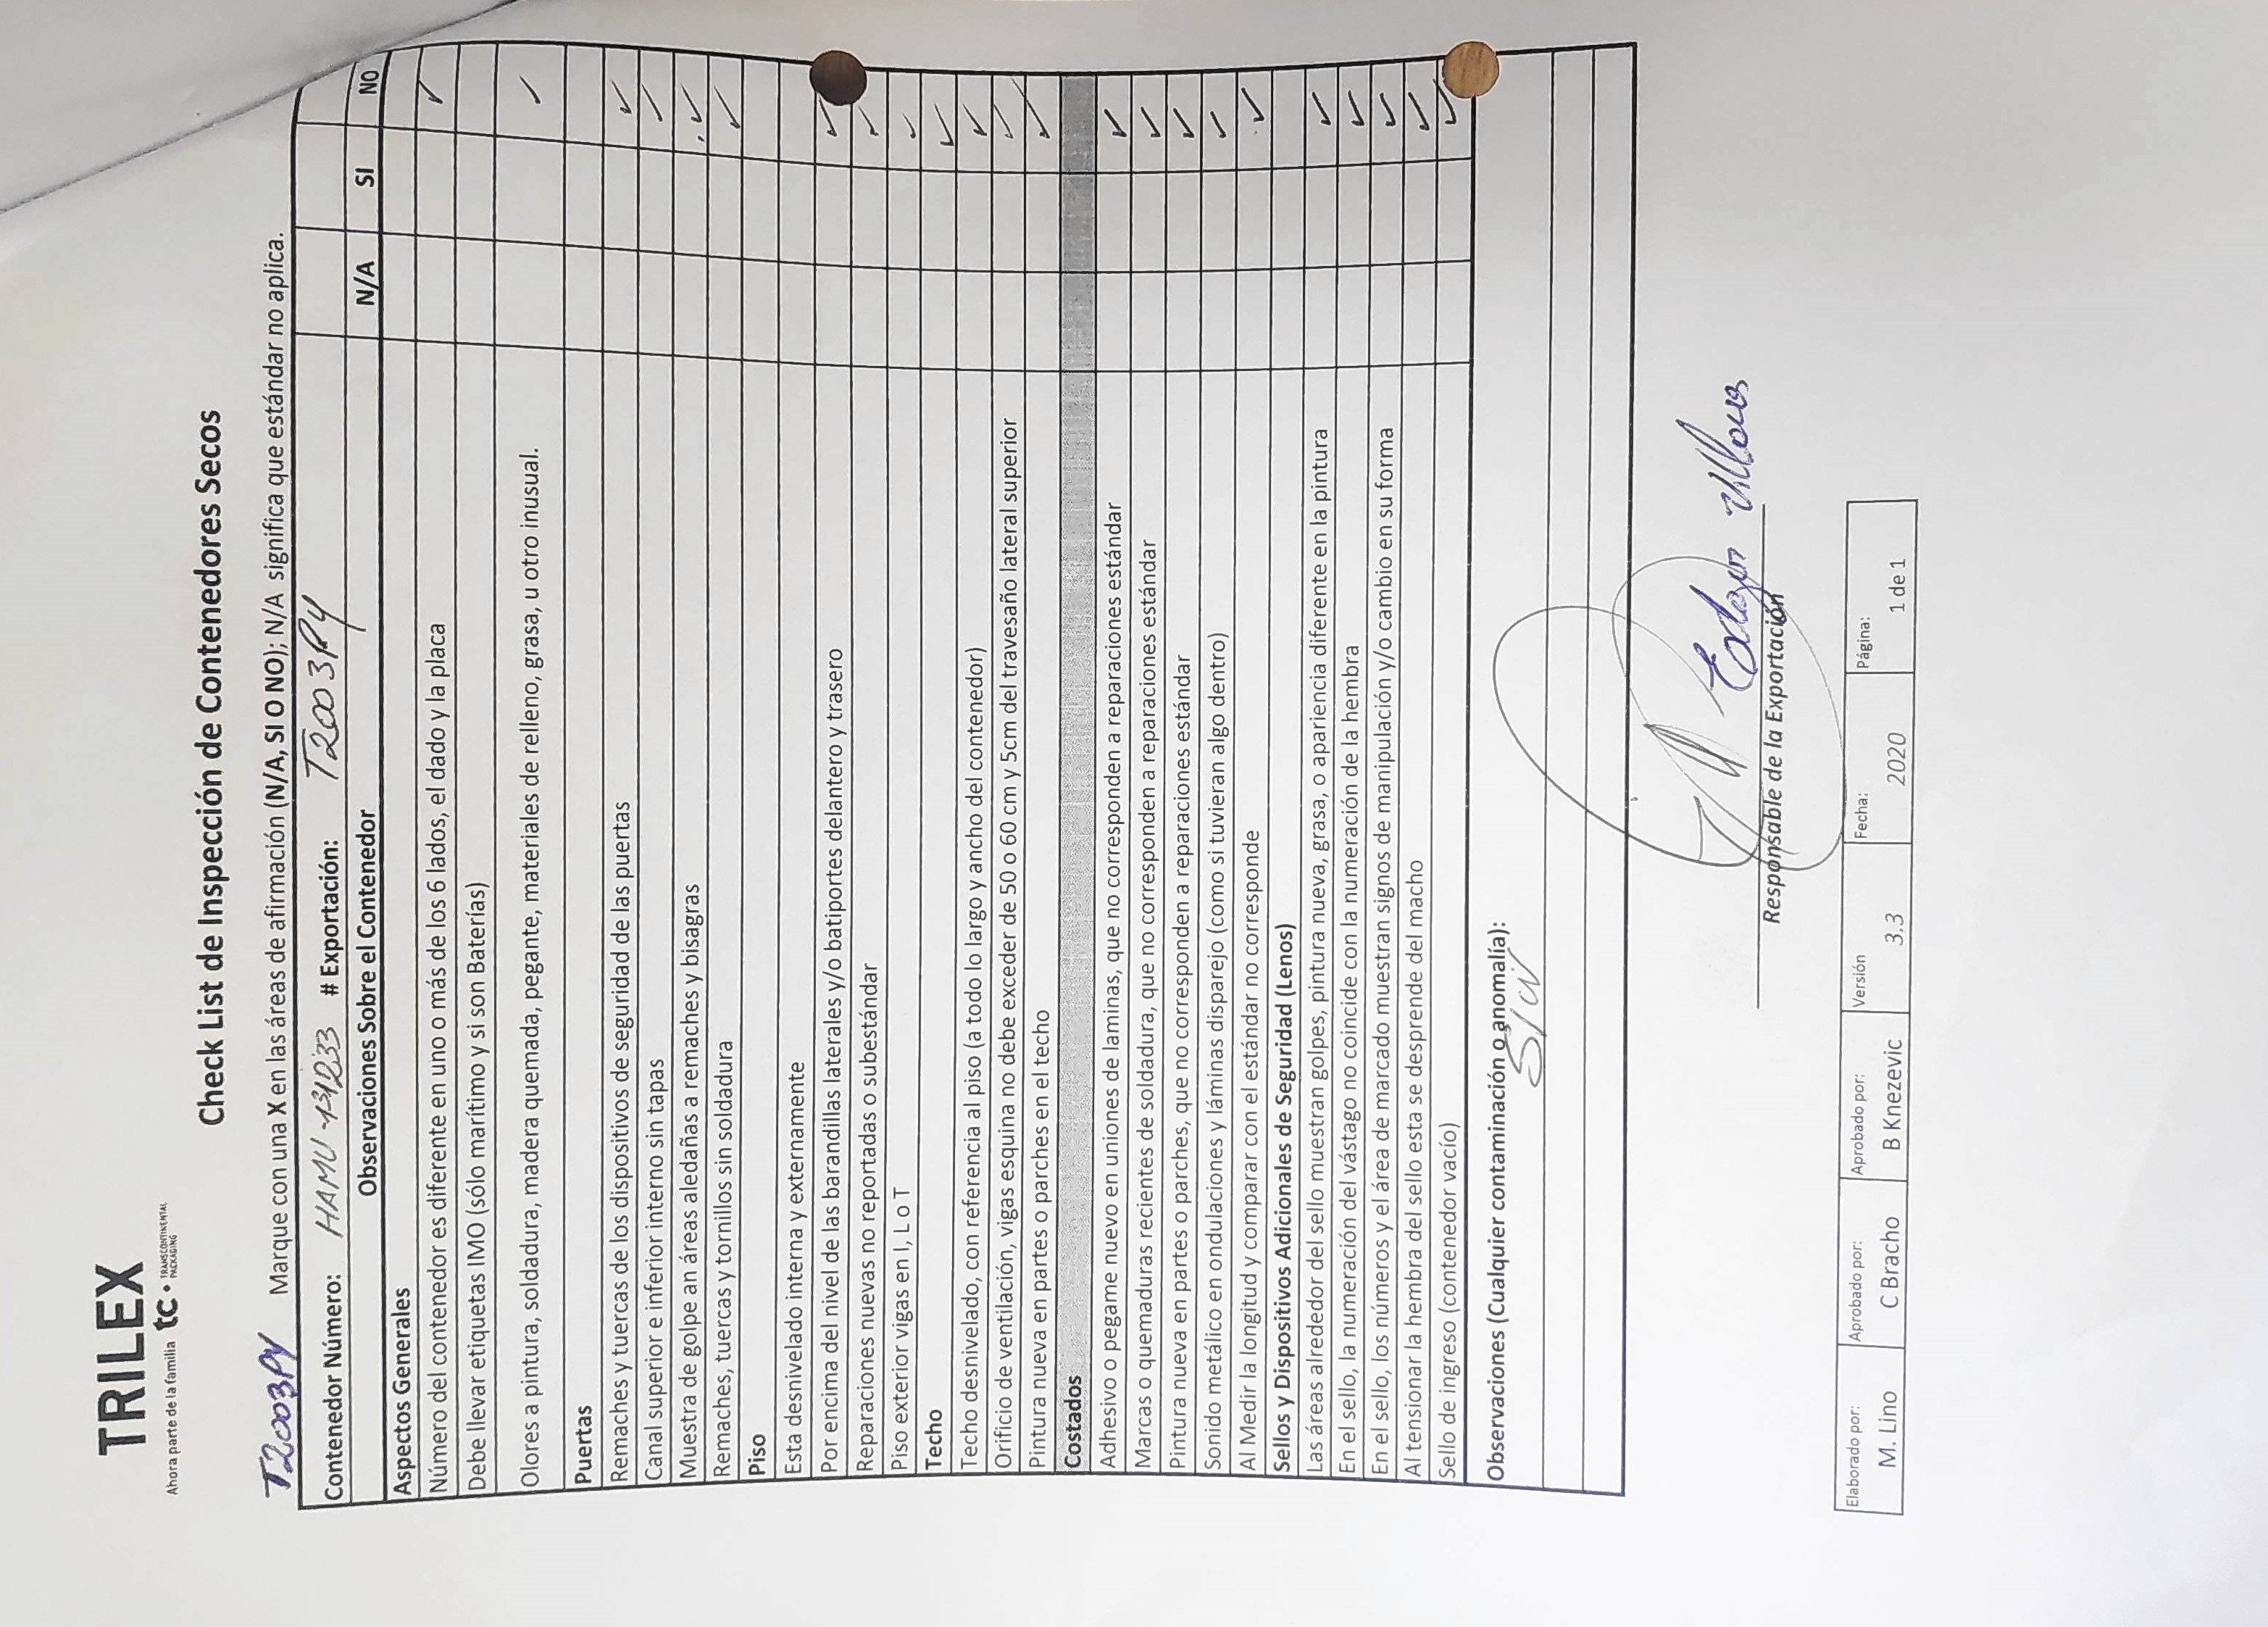 TRILEX
Ahora parte de la familia tc • TRANSCONTINENTAL PACKAGING
Check List de Inspección de Contenedores Secos
T2003PY Marque con una X en las áreas de afirmación (N/A, SI O NO); N/A significa que estándar no aplica.
Contenedor Número: HAMU-131233 # Exportación: T2003PY
Observaciones Sobre el Contenedor N/A SI NO
Aspectos Generales
Número del contenedor es diferente en uno o más de los 6 lados, el dado y la placa ✓
Debe llevar etiquetas IMO (sólo marítimo y si son Baterías)
Olores a pintura, soldadura, madera quemada, pegante, materiales de relleno, grasa, u otro inusual. ✓
Puertas
Remaches y tuercas de los dispositivos de seguridad de las puertas ✓
Canal superior e inferior interno sin tapas ✓
Muestra de golpe an áreas aledañas a remaches y bisagras ✓
Remaches, tuercas y tornillos sin soldadura ✓
Piso
Esta desnivelado interna y externamente
Por encima del nivel de las barandillas laterales y/o batiportes delantero y trasero ✓
Reparaciones nuevas no reportadas o subestándar ✓
Piso exterior vigas en I, L o T ✓
Techo ✓
Techo desnivelado, con referencia al piso (a todo lo largo y ancho del contenedor) ✓
Orificio de ventilación, vigas esquina no debe exceder de 50 o 60 cm y 5cm del travesaño lateral superior ✓
Pintura nueva en partes o parches en el techo ✓
Costados
Adhesivo o pegame nuevo en uniones de laminas, que no corresponden a reparaciones estándar ✓
Marcas o quemaduras recientes de soldadura, que no corresponden a reparaciones estándar ✓
Pintura nueva en partes o parches, que no corresponden a reparaciones estándar ✓
Sonido metálico en ondulaciones y láminas disparejo (como si tuvieran algo dentro) ✓
Al Medir la longitud y comparar con el estándar no corresponde ✓
Sellos y Dispositivos Adicionales de Seguridad (Lenos)
Las áreas alrededor del sello muestran golpes, pintura nueva, grasa, o apariencia diferente en la pintura ✓
En el sello, la numeración del vástago no coincide con la numeración de la hembra ✓
En el sello, los números y el área de marcado muestran signos de manipulación y/o cambio en su forma ✓
Al tensionar la hembra del sello esta se desprende del macho ✓
Sello de ingreso (contenedor vacío) ✓
Observaciones (Cualquier contaminación o anomalía):
Edgar
Responsable de la Exportación
Elaborado por: Aprobado por: Aprobado por: Versión Fecha: Página:
M. Lino C Bracho B Knezevic 3.3 2020 1 de 1